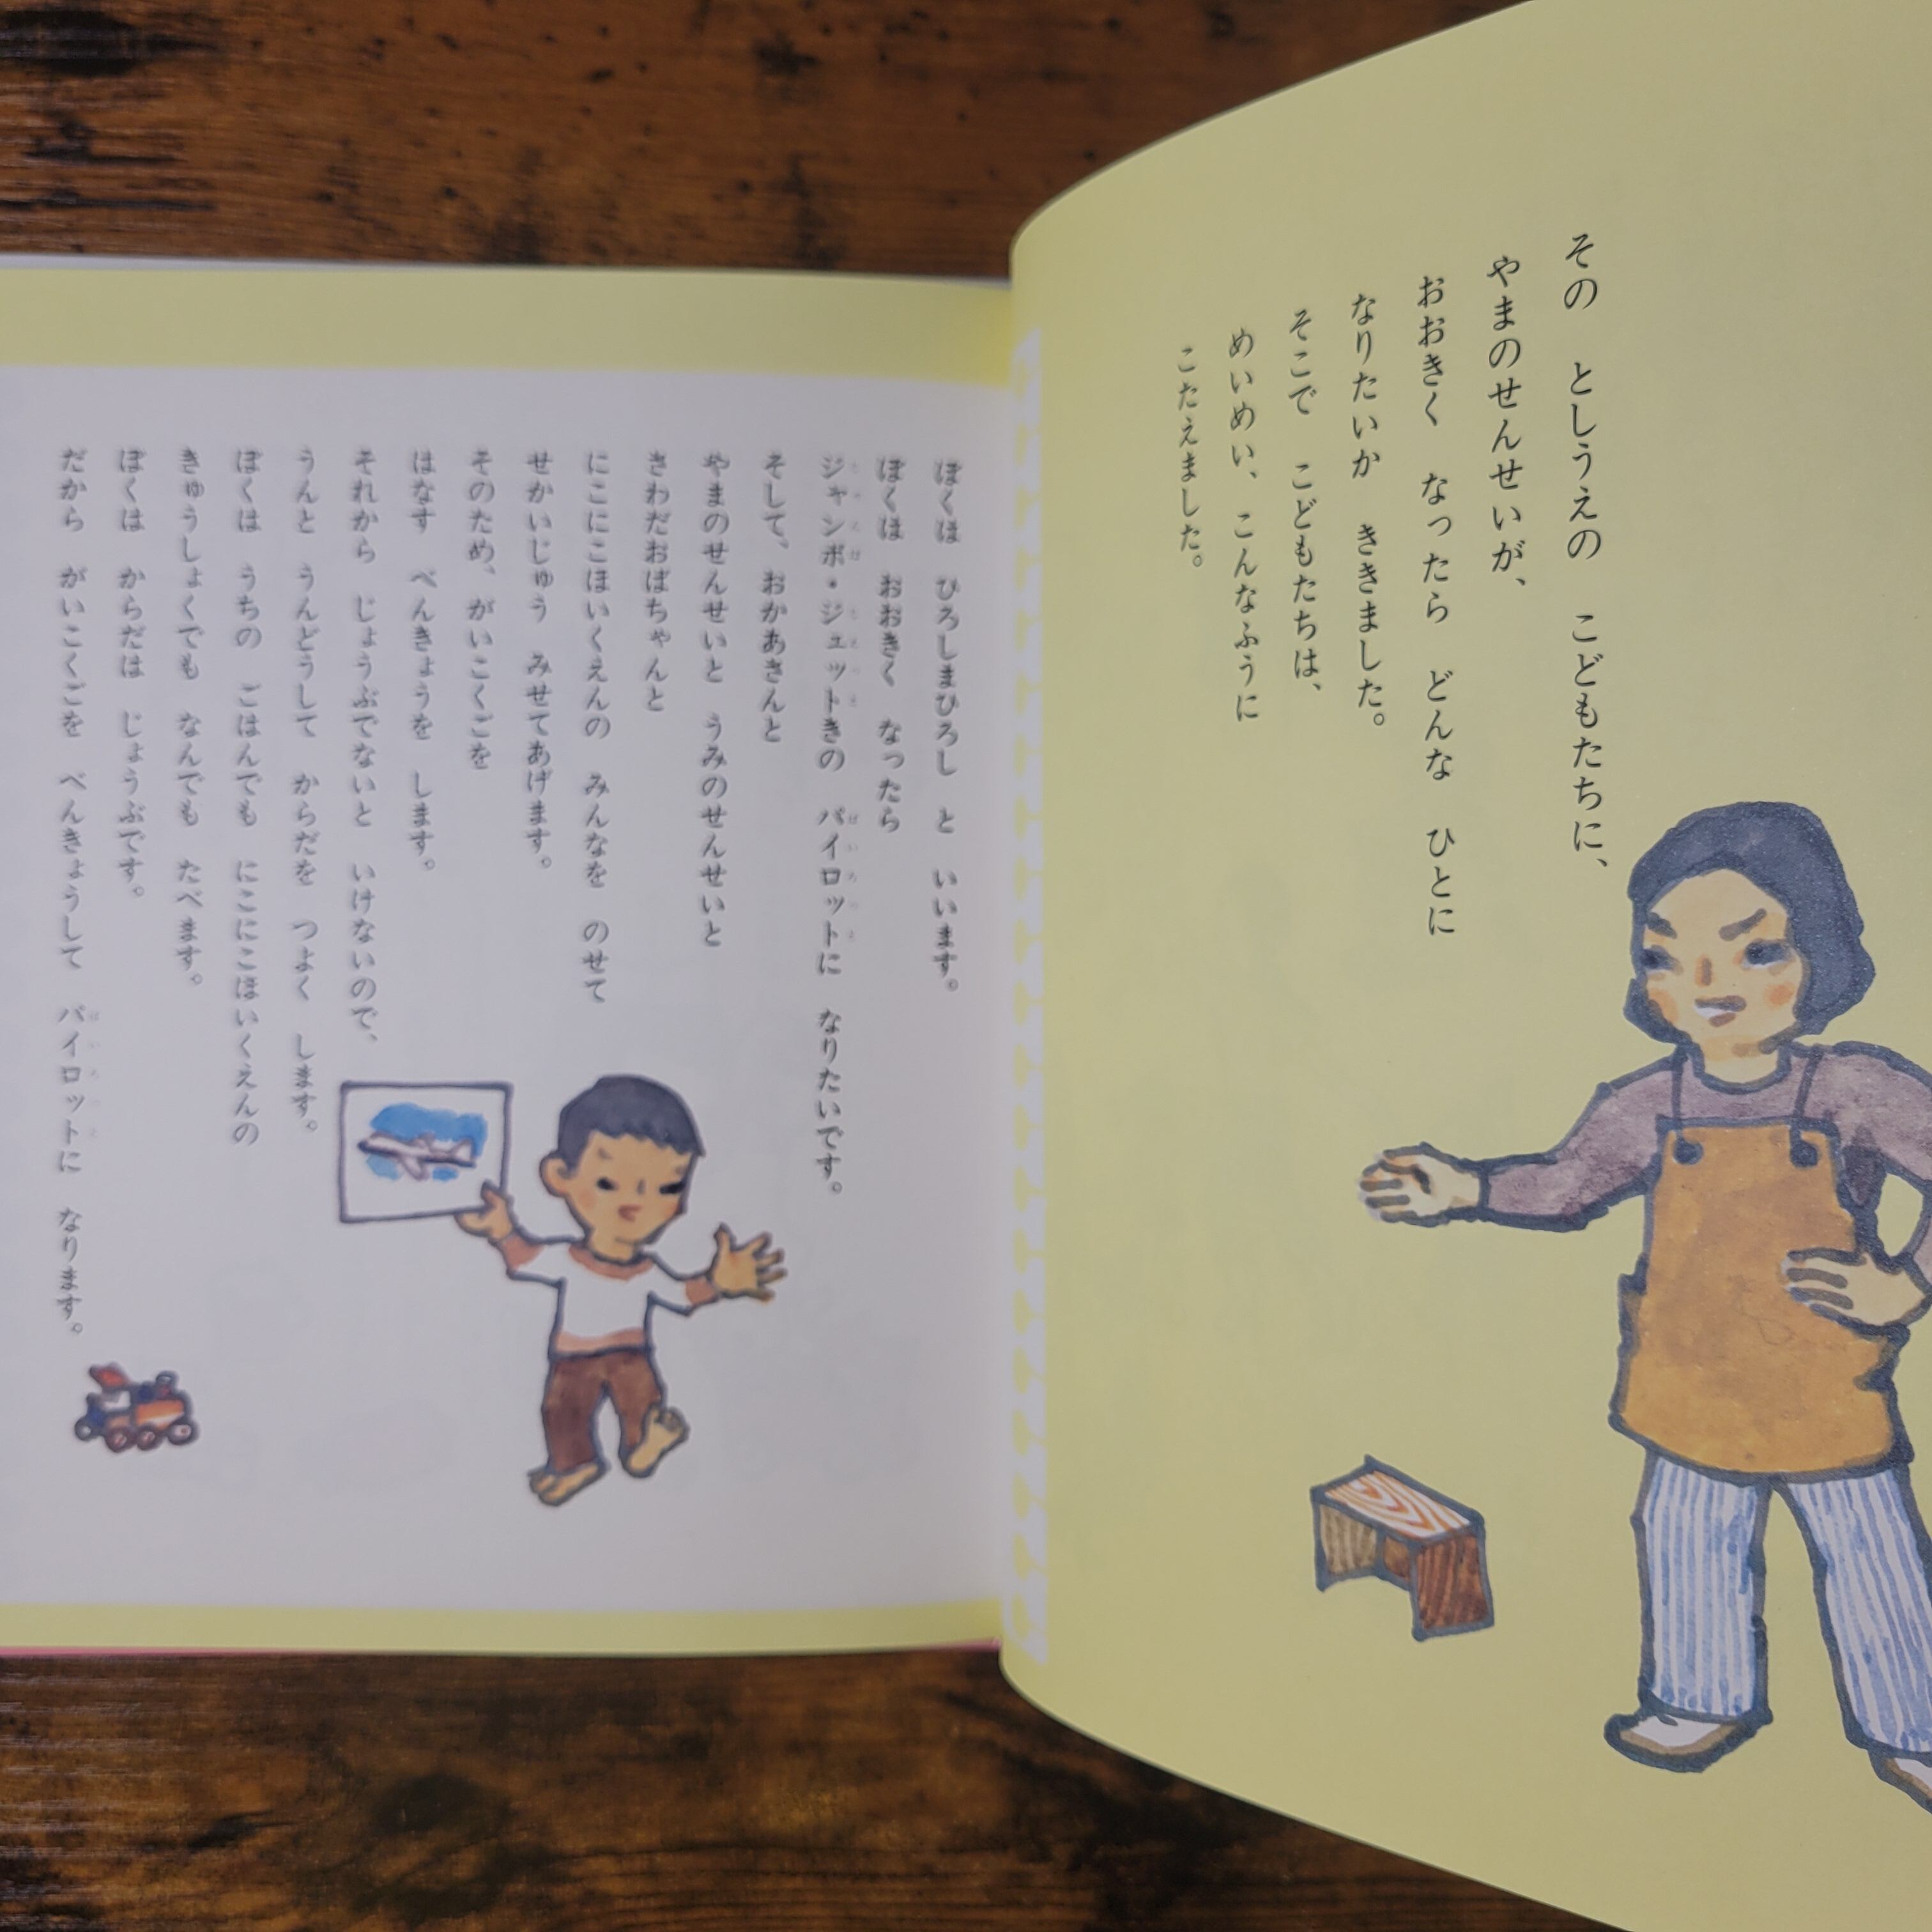 その としうえの こどもたちに、
やまのせんせいが、
おおきく なったら どんな ひとに
なりたいか ききました。
そこで こどもたちは、
めいめい、こんなふうに
こたえました。
ぼくは ひろしまひろし と いいます。
ぼくは おおきく なったら
ジャンボ・ジェットきの パイロットに なりたいです。
そして、おかあさんと
やまのせんせいと うみのせんせいと
さわだおばちゃんと
にこにこほいくえんの みんなを のせて
せかいじゅう みせてあげます。
そのため、がいこくごを
はなす べんきょうを します。
それから じょうぶでないと いけないので、
うんと うんどうして からだを つよく します。
ぼくは うちの ごはんでも にこにこほいくえんの
きゅうしょくでも なんでも たべます。
ぼくは からだは じょうぶです。
だから がいこくごを べんきょうして パイロットに なります。